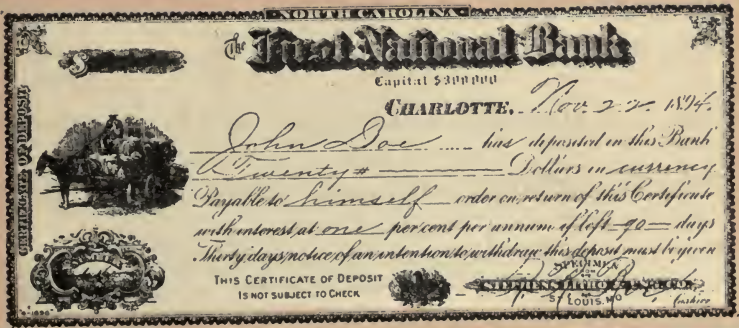 NORTH CAROLINA
The First National Bank
Capital $300000
CHARLOTTE, Nov. 22 1894.
John Doe has deposited in this Bank
Twenty # Dollars in currency
Payable to himself order on return of this Certificate
with interest at one per cent per annum if left 90 days
Thirty days notice of an intention to withdraw this deposit must be given
CERTIFICATE OF DEPOSIT
THIS CERTIFICATE OF DEPOSIT
IS NOT SUBJECT TO CHECK
SPECIMEN
FROM
STEPHENS LITHO & ENG. CO.
ST LOUIS, MO
Cashier